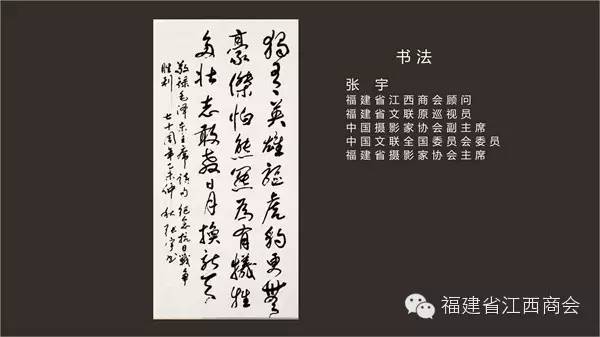 獨有英雄驅虎豹更無
豪傑怕熊羆為有犧牲
多壯志敢教日月換新天
敬録毛澤東主席詩句 紀念抗日戰爭
胜利七十周年乙未仲秋張宇书
书法
张宇
福建省江西商会顾问
福建省文联原巡视员
中国摄影家协会副主席
中国文联全国委员会委员
福建省摄影家协会主席
福建省江西商会